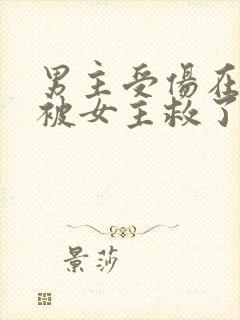 男主受傷在
被女主救了
景莎